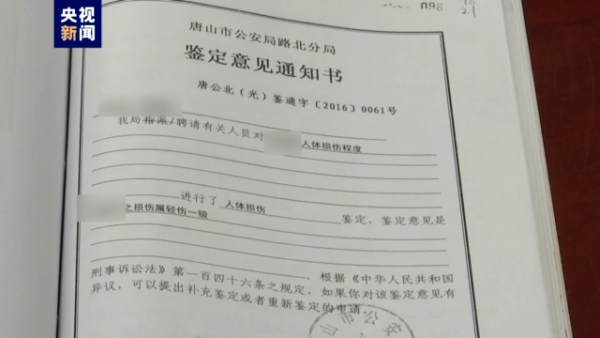 央视新闻
098
21
唐山市公安局路北分局
鉴定意见通知书
唐公北(光)鉴通字〔2016〕0061号
我局指派/聘请有关人员对 人体损伤程度
进行了 人体损伤 鉴定,鉴定意见是
之损伤属轻伤一级
。根据《中华人民共和国
刑事诉讼法》第一百四十六条之规定,如果你对该鉴定意见有
异议,可以提出补充鉴定或者重新鉴定的申请。
山市公安